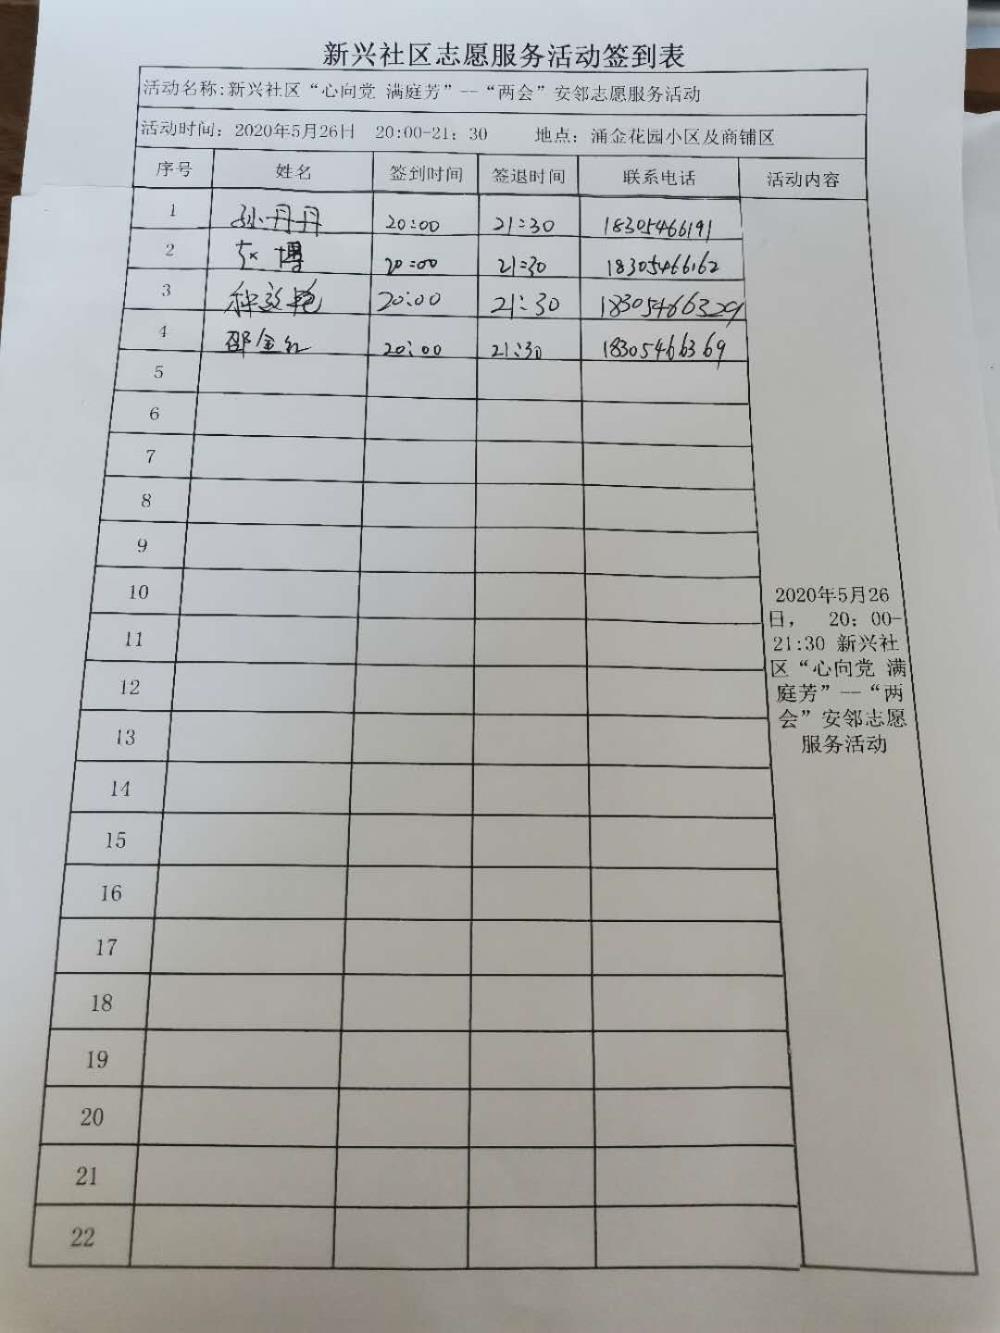 新兴社区志愿服务活动签到表
活动名称:新兴社区“心向党 满庭芳”--“两会”安邻志愿服务活动
活动时间：2020年5月26日 20:00-21：30 地点：涌金花园小区及商铺区
序号 姓名 签到时间 签退时间 联系电话 活动内容
1 孙丹丹 20:00 21:30 18305466191
2 赵博 20:00 21:30 18305466162
3 20:00 21:30 18305466329
4 邵金红 20:00 21:30 18305466369
5
6
7
8
9
10
11
12
13
14
15
16
17
18
19
20
21
22
2020年5月26
日， 20：00-
21:30 新兴社
区“心向党 满
庭芳”--“两
会”安邻志愿
服务活动